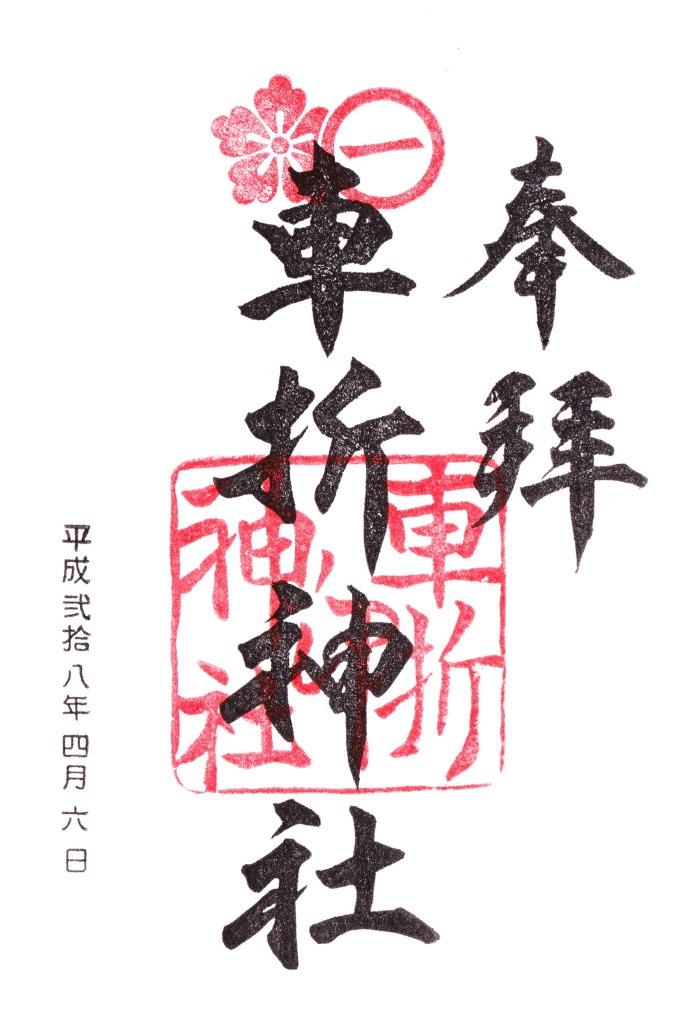 奉拝
一
車折神社
車折神社
平成弐拾八年四月六日